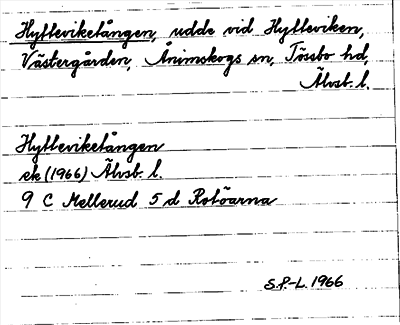 Hytteviketången, udde vid Hytteviken,
Västergården, Ånimskogs sn, Tössbo hd,
Älvsb. l.
Hytteviketången
ek (1966) Älvsb. l.
9 C Mellerud 5 d Rotöarna
S.P-L. 1966